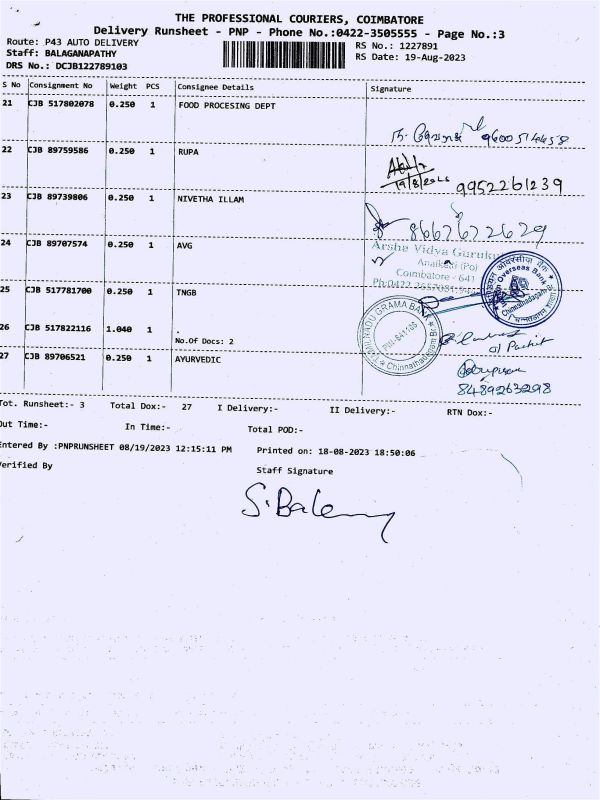 THE PROFESSIONAL COURIERS, COIMBATORE
Delivery Runsheet - PNP - Phone No.:0422-3505555 - Page No.:3
Route: P43 AUTO DELIVERY
RS No.: 1227891
Staff: BALAGANAPATHY
RS Date: 19-Aug-2023
DRS No.: DCJB122789103
S No Consignment No Weight PCS Consignee Details Signature
21 CJB 517802078 0.250 1 FOOD PROCESING DEPT
9600514458
22 CJB 89759586 0.250 1 RUPA
9952261239
23 CJB 89739806 0.250 1 NIVETHA ILLAM
8667672629
24 CJB 89707574 0.250 1 AVG
Arsha Vidya Guruku
Anaikatti (Po)
Coimbatore - 641
25 CJB 517781700 0.250 1 TNGB
TAMILNADU GRAMA BANK
Chinnathadagam
Overseas Bank
Chinnathadagam
26 CJB 517822116 1.040 1 .
No.Of Docs: 2
27 CJB 89706521 0.250 1 AYURVEDIC
8489263298
Tot. Runsheet:- 3 Total Dox:- 27 I Delivery:- II Delivery:- RTN Dox:-
Out Time:- In Time:- Total POD:-
Entered By :PNPRUNSHEET 08/19/2023 12:15:11 PM Printed on: 18-08-2023 18:50:06
Verified By Staff Signature